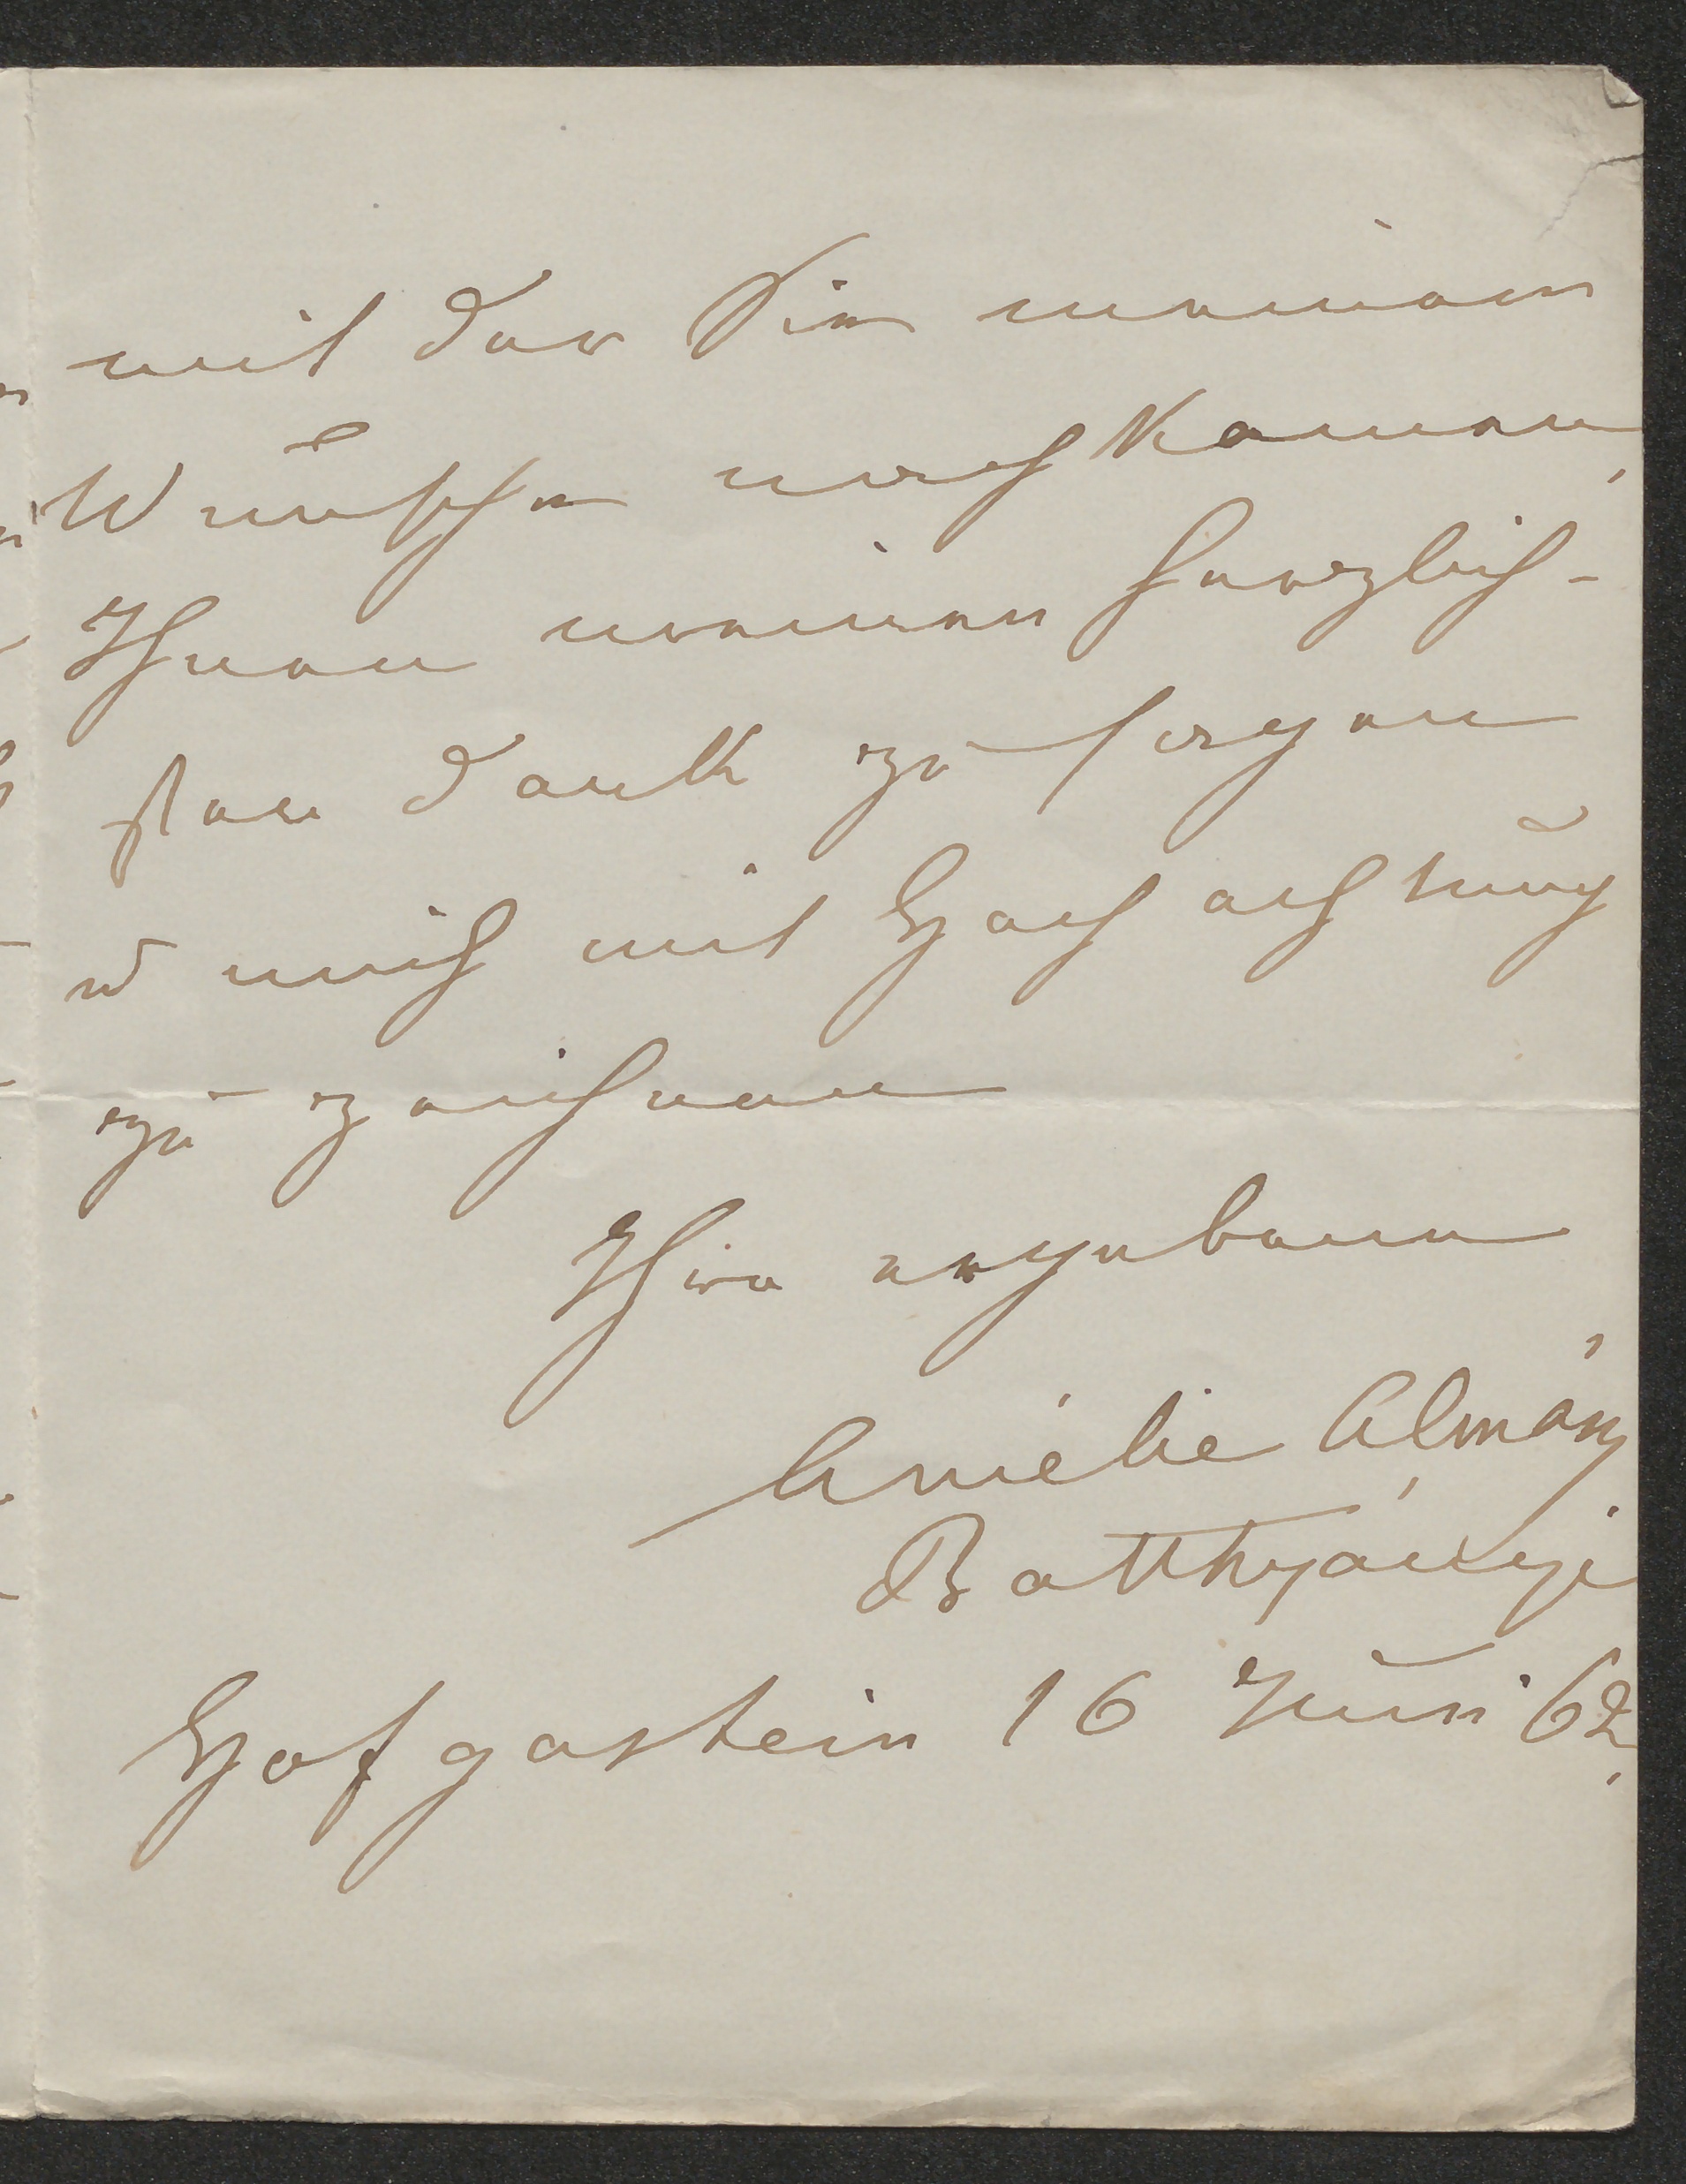 mit der Sie meinem
Wunsche nachkamen,
Ihnen meinen herzlich-
sten Dank zu sagen
u mich mit Hochachtung
zu zeichnen
Ihre ergebene
Amélie Almásy
Batthyányi
Hofgastein 16 Juni 62.